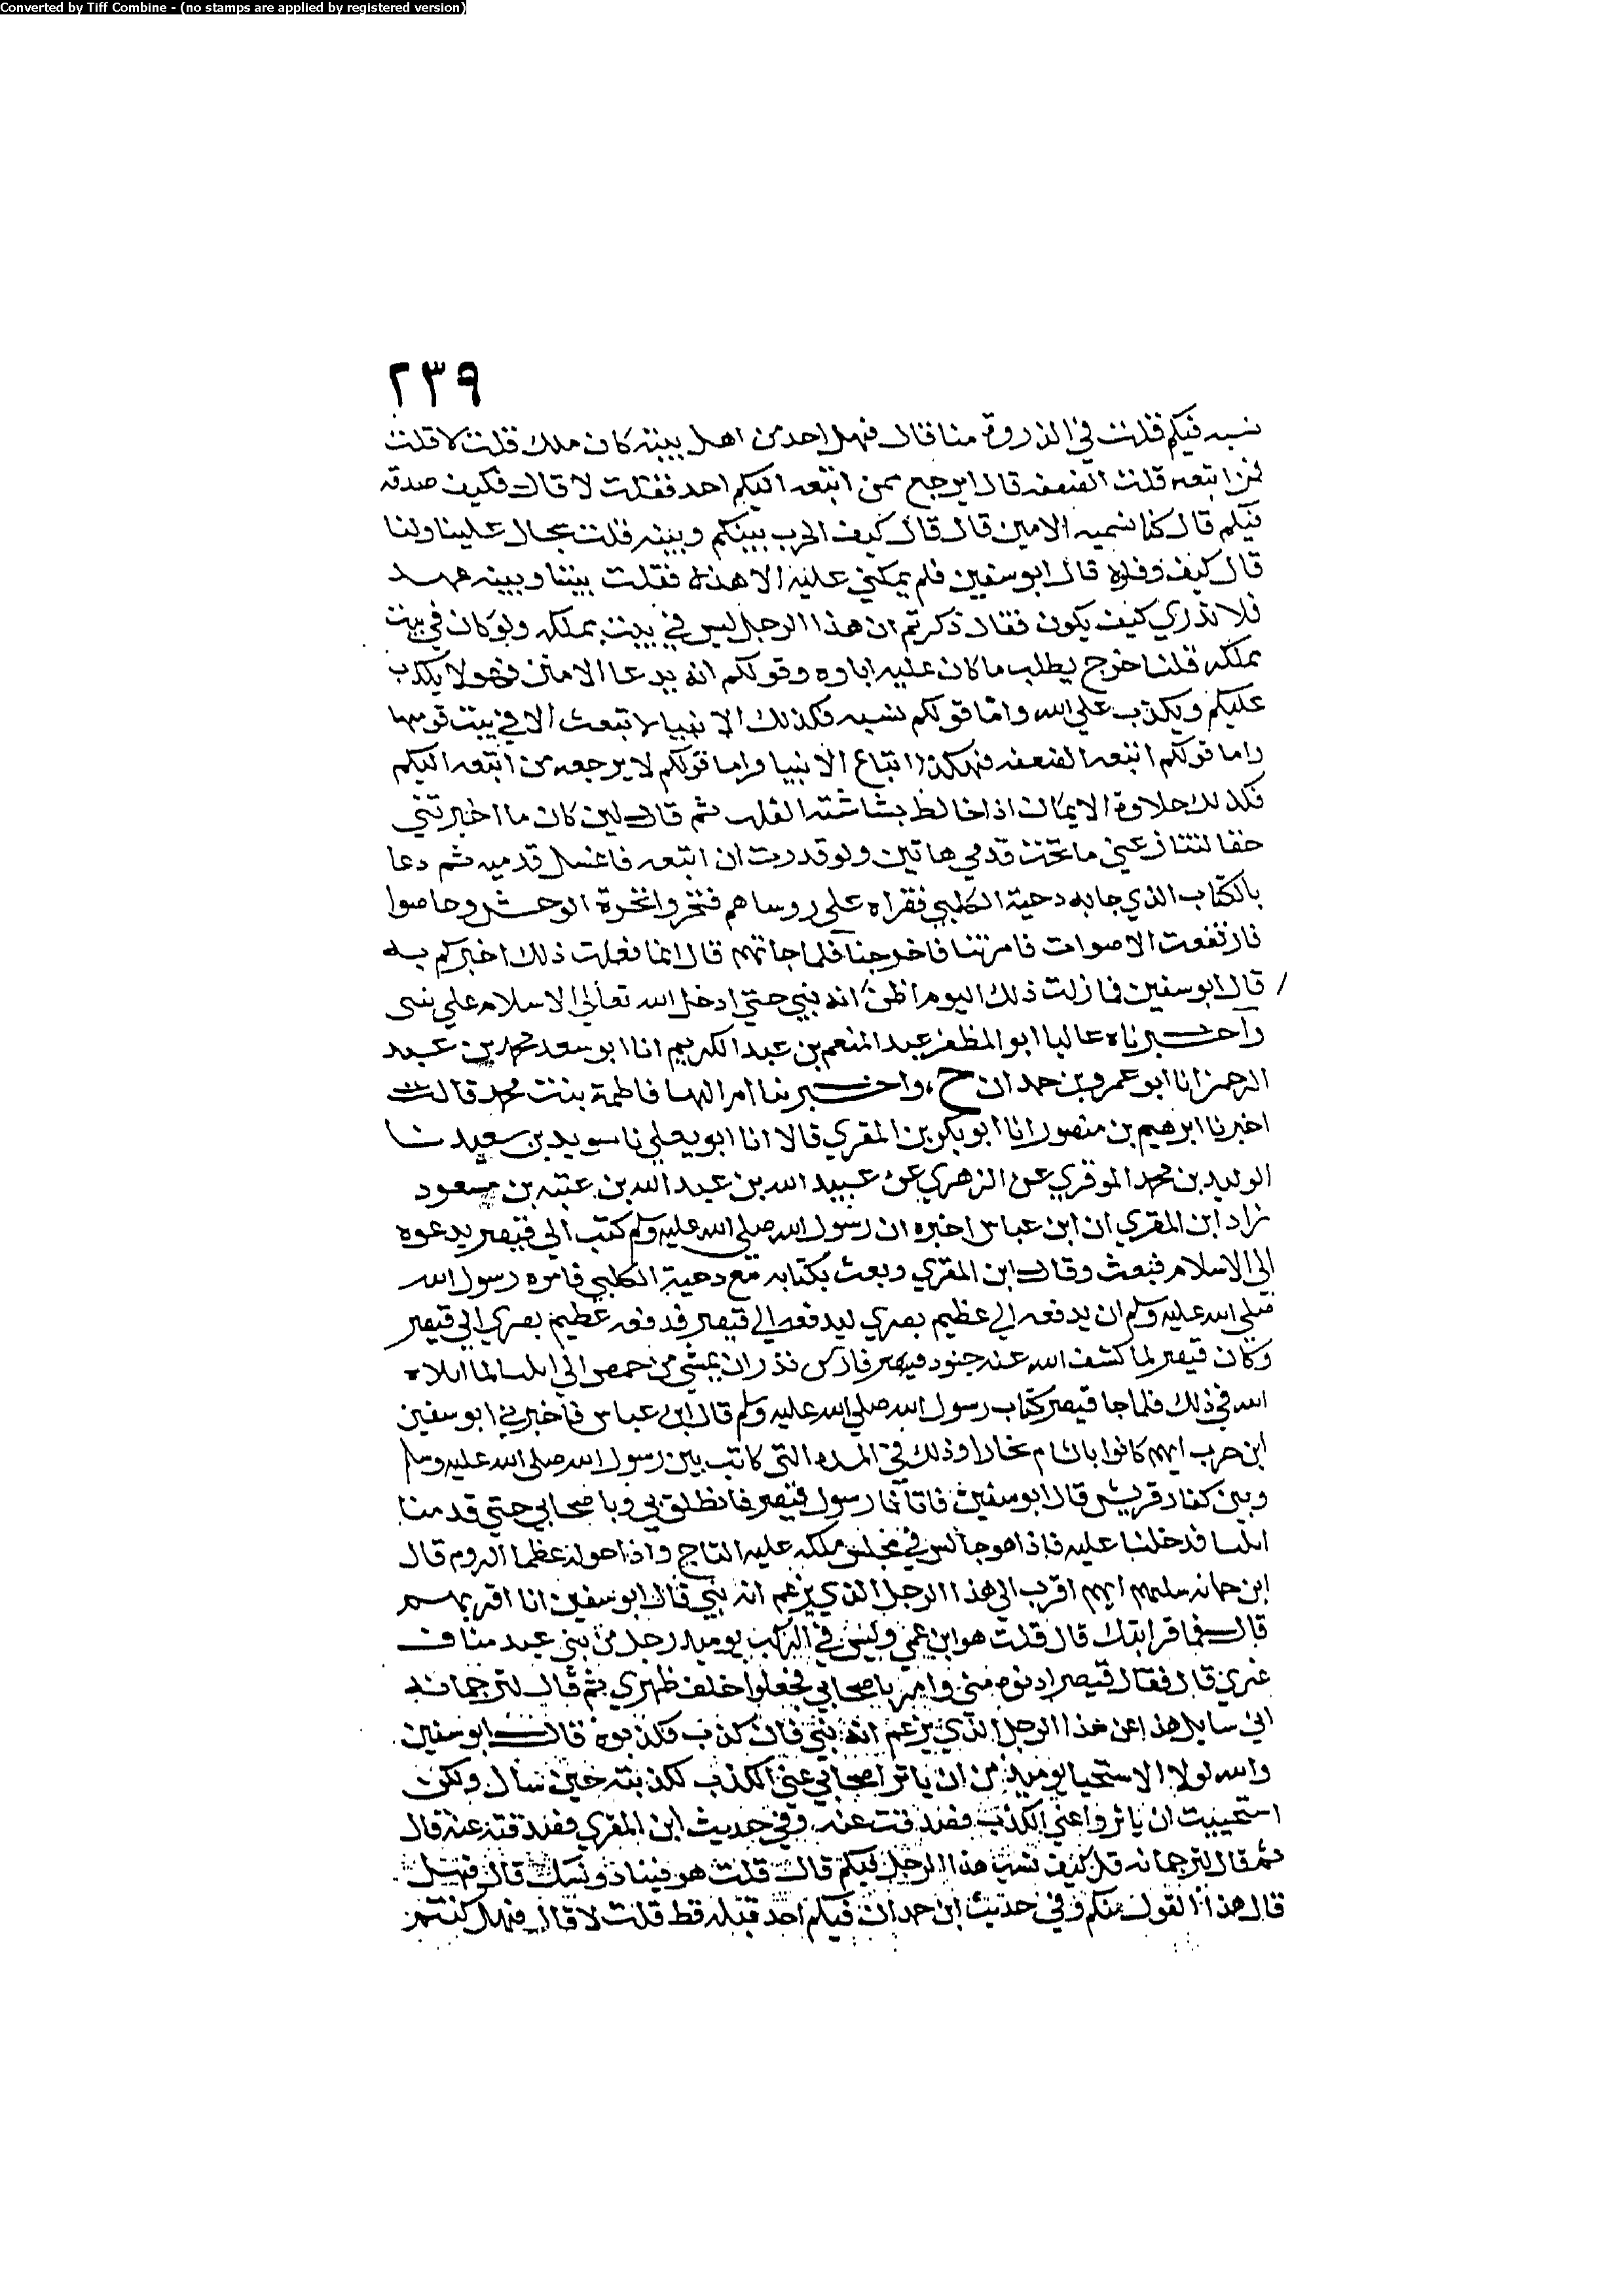 Converted by Tiff Combine - (no stamps are applied by registered version)
٢٣٩
نسبه فيكم قلت في الذروة منا قال فهل احد من اهل بيته كان ملك قلت لا قلت
فمن اتبعه قلت الضعفه قال ايرجع ممن اتبعه اليكم احد فقلت لا قال فكيف صدقه
فيكم قال كنا نسميه الامين قال قال كيف الحرب بينكم وبينه قلت سجال علينا ولنا
قال كيف وفاوه قال ابو سفين فلم يمكني عليه الا هذه فقلت بيننا وبينه عهد
فلا ندري كيف يكون فقال ذكرتم ان هذا الرجل ليس في بيت مملكه ولو كان في بيت
مملكه قلنا خرج يطلب ما كان عليه اباوه وقولكم انه يدعا الامين فهو لا يكذب
عليكم ويكذب على الله واما قولكم نسبه فكذلك الانبيا لا تبعث الا في بيت قومها
واما قولكم اتبعه الضعفه فهكذا اتباع الانبيا واما قولكم لا يرجع من اتبعه اليكم
فكذلك حلاوة الايمان اذا خالط بشاشته القلب ثم قال لين كان ما اخبرتني
حقا لتنازعني ما تحت قدمي هاتين ولو قدرت ان اتبعه فاغسل قدميه ثم دعا
بالكتاب الذي جا به دحية الكلبي فقراه على روساهم فنخروا نخرة الوحش وحاصوا
فارتفعت الاصوات فامر بنا فاخرجنا فلما جاتهم قال انما فعلت ذلك اخبركم به
قال ابو سفين فما زلت ذلك اليوم اظن انه نبي حتى ادخل الله تعالى الاسلام علي
واخبرناه عاليا ابو المظفر عبد المنعم بن عبد الكريم انا ابو سعد محمد بن عبد
الرحمن انا ابو عمرو بن حمدان ح واخبرتنا ام البها فاطمة بنت محمد قالت
اخبرنا ابرهيم بن منصور انا ابو بكر بن المقري قالا انا ابو يعلي نا سويد بن سعيد نا
الوليد بن محمد الموقري عن الزهري عن عبيد الله بن عبد الله بن عتبه بن مسعود
زاد ابن المقري ان ابن عباس اخبره ان رسول الله صلى الله عليه وسلم كتب الي قيصر يدعوه
الى الاسلام فبعث وقال ابن المقري وبعث بكتابه مع دحية الكلبي فامره رسول الله
صلى الله عليه وسلم ان يدفعه الي عظيم بصري ليدفعه الي قيصر فدفعه عظيم بصري الي قيصر
وكان قيصر لما كشف الله عنه جنود فارس نذر ان يمشي من حمص الي ايليا لما ابلاه
الله في ذلك فلما جا قيصر كتاب رسول الله صلى الله عليه وسلم قال ابن عباس فاخبرني ابو سفين
ابن حرب انهم كانوا بالشام تجارا وذلك في المده التي كانت بين رسول الله صلى الله عليه وسلم
وبين كفار قريش قال ابو سفين فاتانا رسول قيصر فانطلق بي وباصحابي حتي قدمنا
ايليا فدخلنا عليه فاذا هو جالس في مجلس ملكه عليه التاج واذا حوله عظما الروم قال
سلهم ايهم اقرب الي هذا الرجل الذي يزعم انه نبي قال ابو سفين انا اقربهم
قال فما قرابتك قال قلت هو ابن عمي وليس في الركب يوميذ رجل من بني عبد مناف
غيري قال فقال قيصر ادنوه مني وامر باصحابي فجعلوا خلف ظهري ثم قال لترجمانه
اني سايل هذا عن هذا الرجل الذي يزعم انه نبي فان كذب فكذبوه قال ابو سفين
والله لولا الاستحيا يوميذ من ان ياثر اصحابي عني الكذب لكذبته حين سال ولكن
استحييت ان ياثروا عني الكذب فصدقت عنه وفي حديث ابن المقري فصدقته عنه قال
ثم قال لترجمانه قل كيف نسب هذا الرجل فيكم قال قلت هو فينا ذو نسب قال فهل
قال هذا القول منكم وفي حديث ابن حمدان فيكم احد قبله قط قلت لا قال فهل كنتم